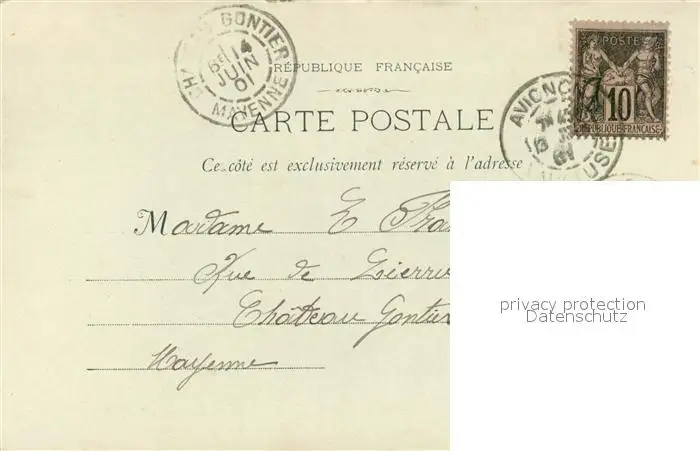 GONTIER
6 14
JUIN
01
MAYENNE
RÉPUBLIQUE FRANÇAISE
CARTE POSTALE
Ce côté est exclusivement réservé à l'adresse
POSTE
10
RÉPUBLIQUE FRANÇAISE
Madame E
Rue de
Château Gontier
Mayenne
privacy protection
Datenschutz